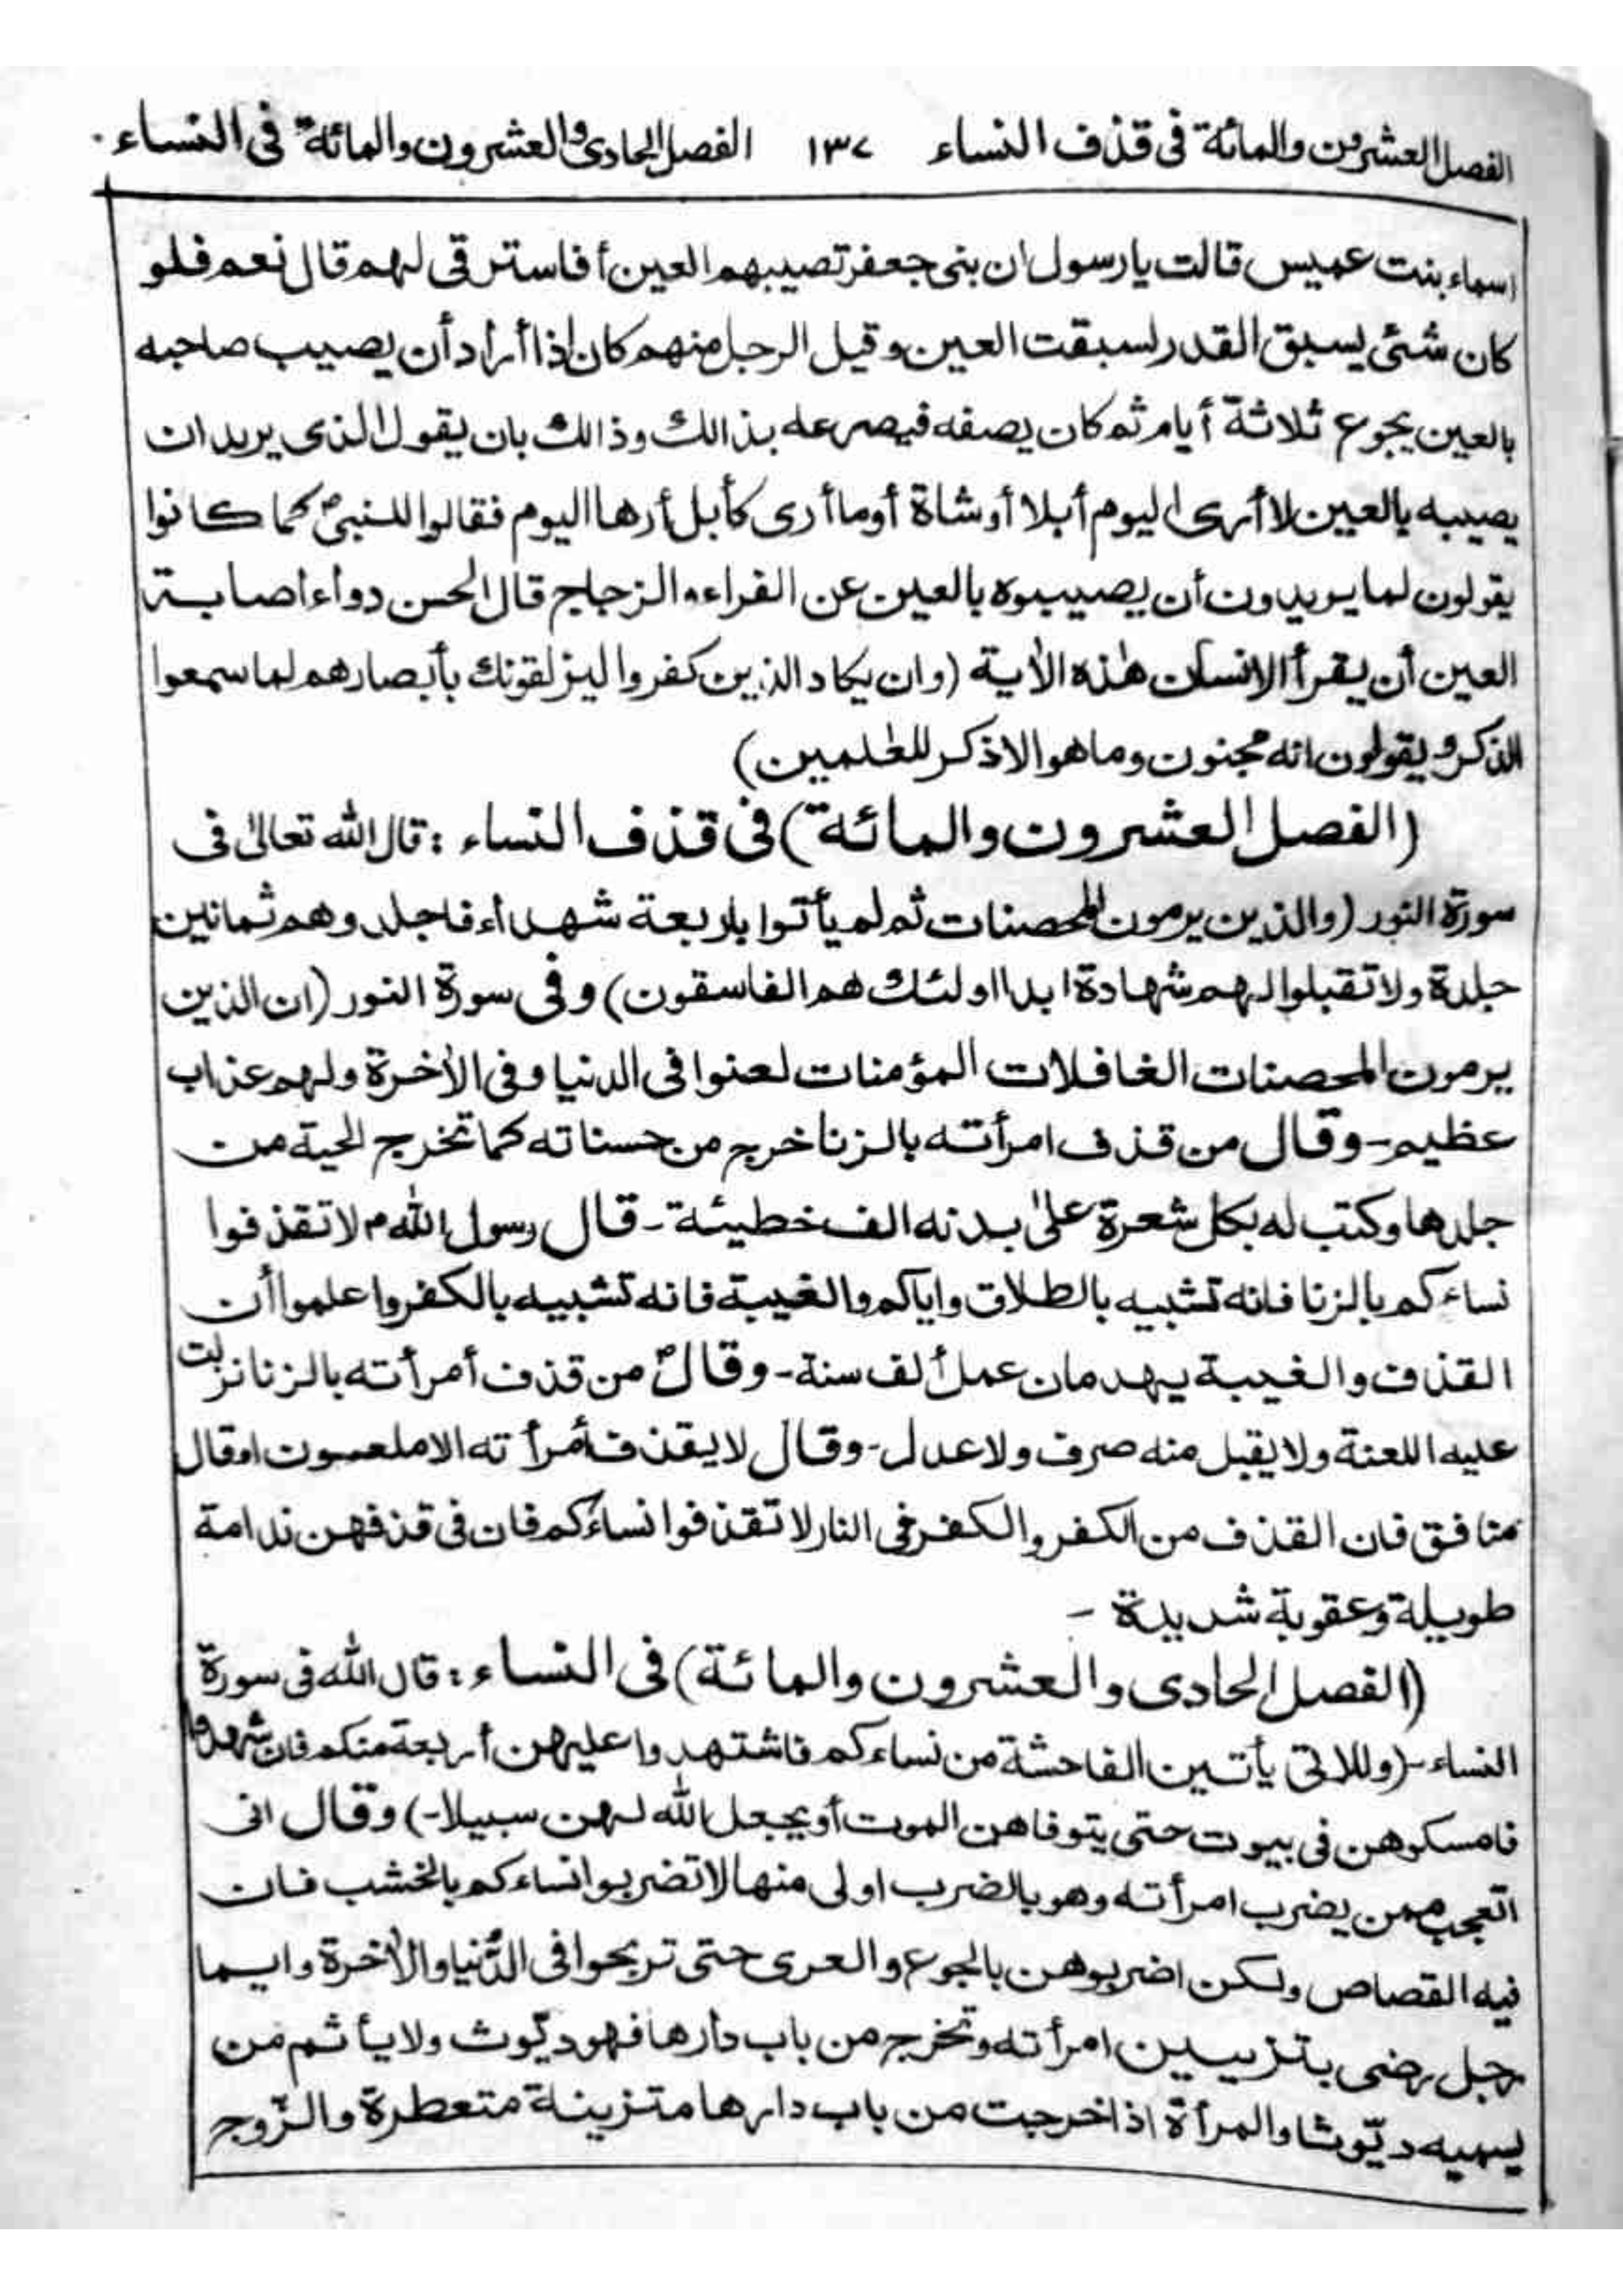 الفصل العشرون والمائة فى قذف النساء ١٣٧ الفصل الحادى والعشرون والمائة فى النساء
اسماء بنت عميس قالت يا رسول ان بنى جعفر تصيبهم العين أفاسترقى لهم قال نعم فلو
كان شئى يسبق القدر لسبقت العين وقيل الرجل منهم كان اذا أراد أن يصيب صاحبه
بالعين يجوع ثلاثة أيام ثم كان يصفه فيصرعه بذالك وذالك بان يقول الذى يريد ان
يصيبه بالعين لا أرى اليوم أبلا أو شاة أو ما أرى كأبل أرها اليوم فقالوا للنبىؐ كما كانوا
يقولون لما يريدون أن يصيبوه بالعين عن الفراء والزجاج قال الحسن دواء اصابة
العين أن يقرأ الانسان هٰذه الاٰية (وان يكاد الذين كفروا ليزلقونك بأبصارهم لما سمعوا
الذكر ويقولون انه مجنون وما هو الا ذكر للعٰلمين)
(الفصل العشرون والمائة) فى قذف النساء : قال الله تعالىٰ فى
سورة النور (والذين يرمون المحصنات ثم لم يأتوا باربعة شهداء فاجلدوهم ثمانين
جلدة ولا تقبلوا لهم شهادة ابدا اولئك هم الفاسقون) وفى سورة النور (ان الذين
يرمون المحصنات الغافلات المؤمنات لعنوا فى الدنيا وفى الاٰخرة ولهم عذاب
عظيم - وقال من قذف امرأته بالزنا خرج من حسناته كما تخرج الحية من
جلدها وكتب له بكل شعرة علىٰ بدنه الف خطيئة - قال رسول اللهم لا تقذفوا
نساءكم بالزنا فانه تشبيه بالطلاق واياكم والغيبة فانه تشبيه بالكفر واعلموا أن
القذف والغيبة يهدمان عمل ألف سنة - وقالؐ من قذف أمرأته بالزنا نزلت
عليه اللعنة ولا يقبل منه صرف ولا عدل - وقال لا يقذف أمرأته الا ملعون اوقال
منافق فان القذف من الكفر والكفر فى النار لا تقذفوا نساءكم فان فى قذفهن ندامة
طويلة وعقوبة شديدة -
(الفصل الحادى والعشرون والمائة) فى النساء : قال الله فى سورة
النساء - (وللاتى يأتين الفاحشة من نساءكم فاشتهدوا عليهن أربعة منكم فان شهدوا
فامسكوهن فى بيوت حتى يتوفاهن الموت أو يجعل الله لهن سبيلا -) وقال انى
اتعجب ممن يضرب امرأته وهو بالضرب اولى منها لا تضربوا نساءكم بالخشب فان
فيه القصاص ولكن اضربوهن بالجوع والعرى حتى تربحوا فى الدّنيا والاٰخرة وايما
رجل رضى بتزيين امرأته وتخرج من باب دارها فهو ديّوث ولا يأثم من
يسميه ديّوثا والمرأة اذا خرجت من باب دارها متزينة متعطرة والزّوج